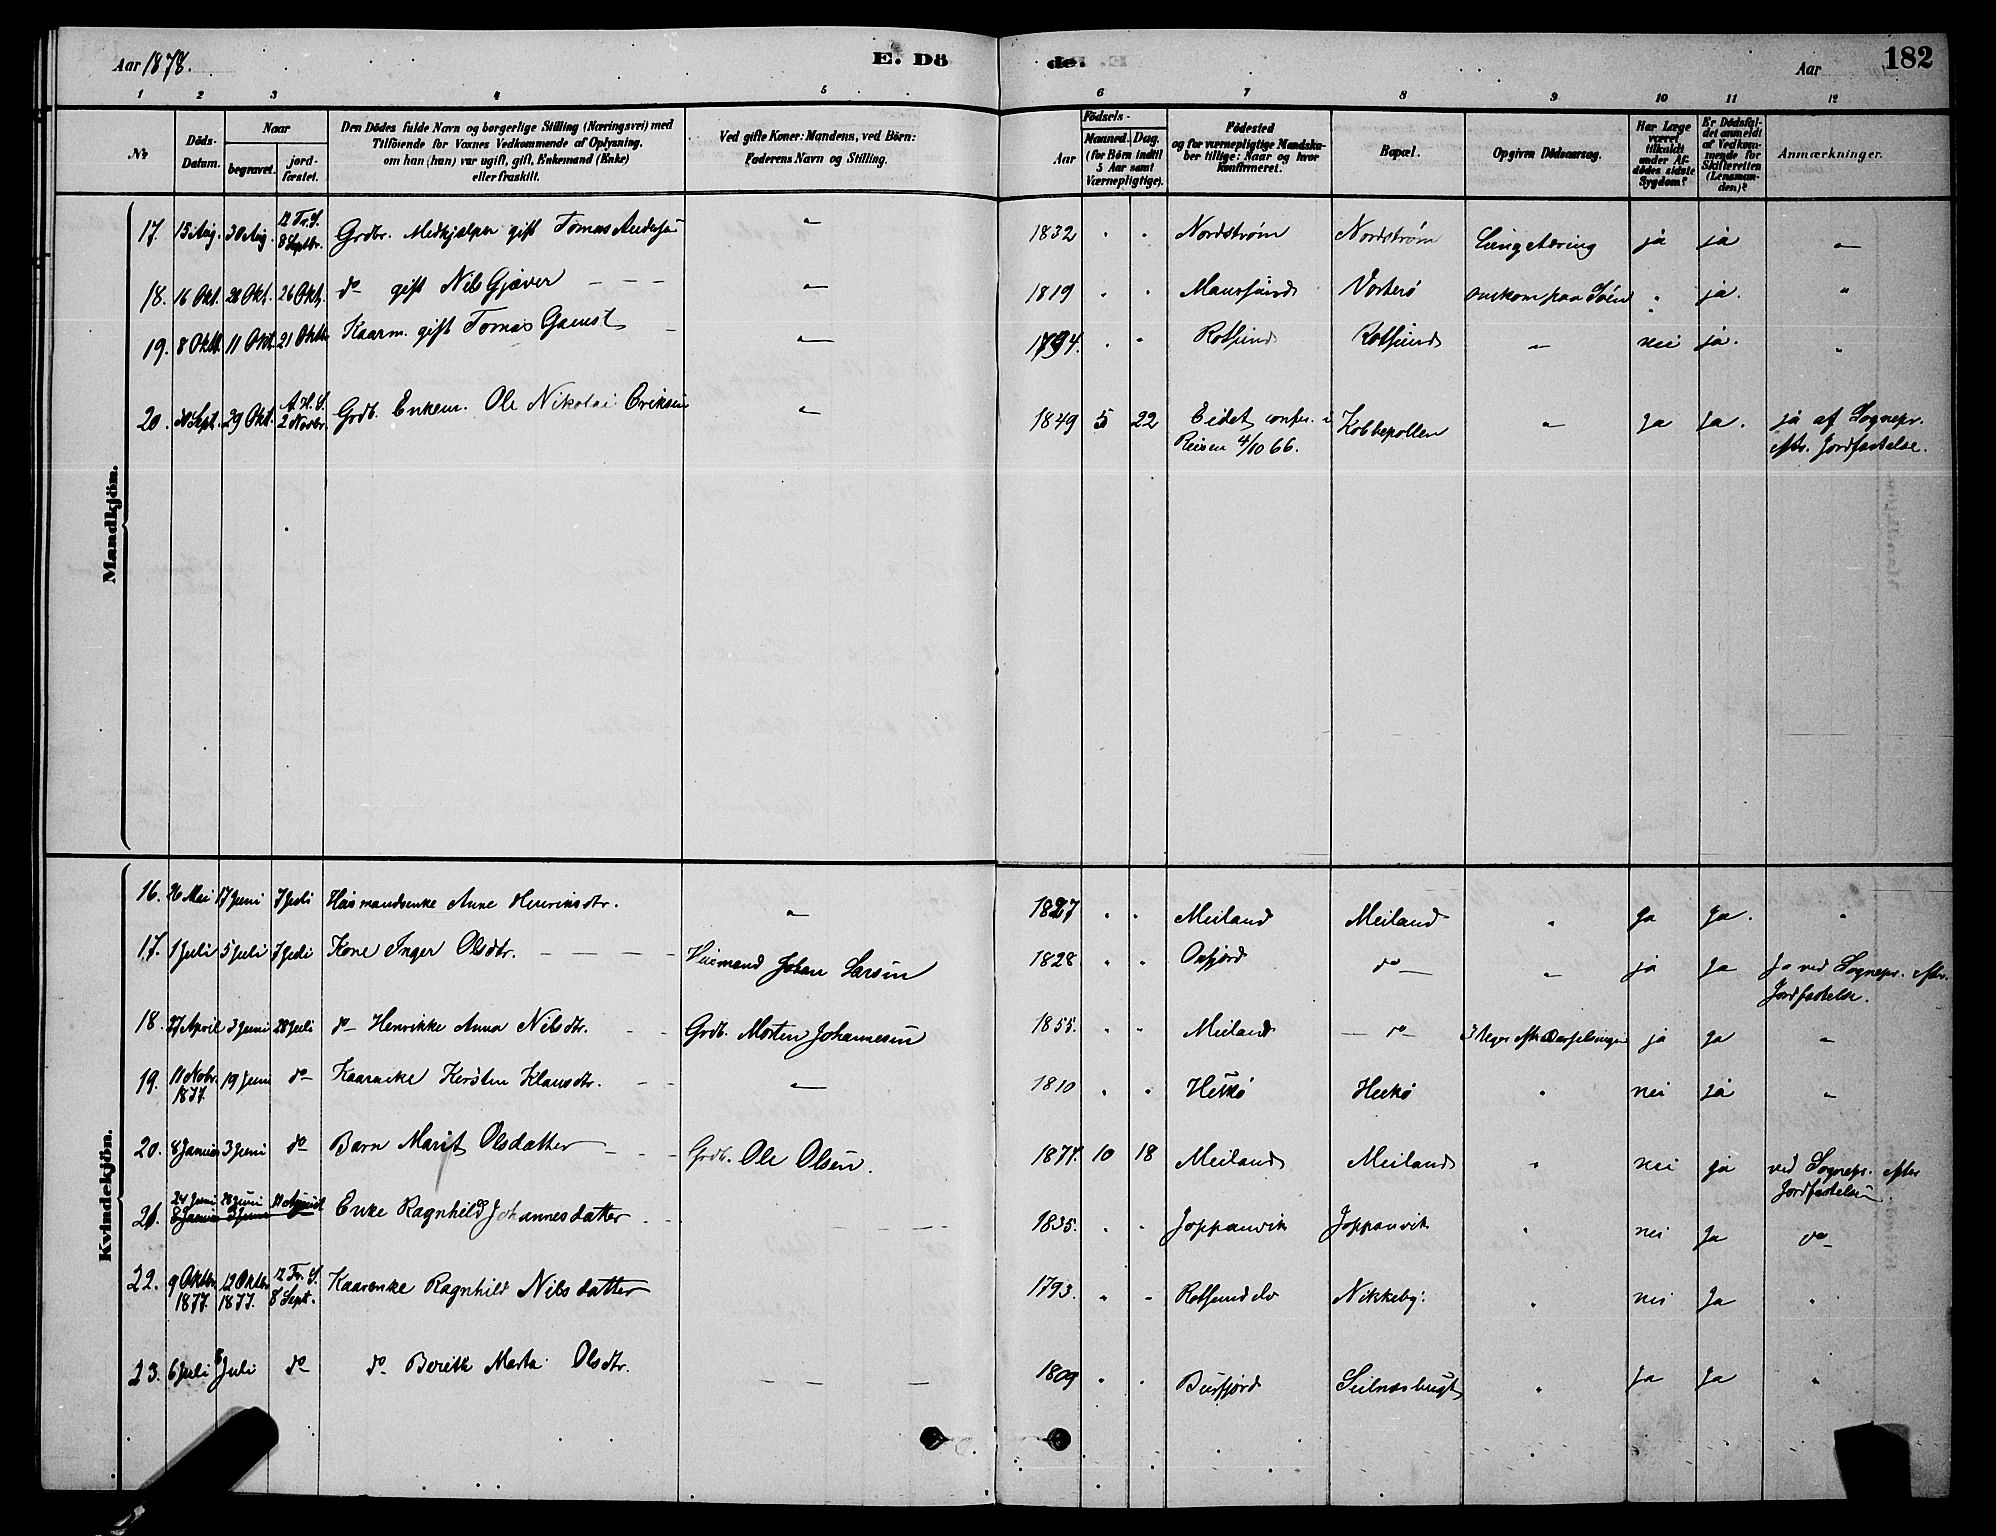 Aar 1878. E. Dö de. Aar 182
1 2 3 4 5 6 7 8 9 10 11 12
No Döds-Datum. Naar begravet. jord-fæstet. Den Dödes fulde Navn og borgerlige Stilling (Næringsvei) med Tilföiende for Voxnes Vedkommende af Oplysning, om han (hun) var ugift, gift, Enkemand (Enke) eller fraskilt. Ved gifte Koner: Mandens, ved Börn: Faderens Navn og Stilling. Födsels- Aar Maaned. Dag. (for Börn indtil 5 Aar samt Værnepligtige). Födested og for værnepligtige Mandskaber tillige: Naar og hvor konfirmeret. Bopæl. Opgiven Dödsaarsag. Har Læge været tilkaldt under Afdödes sidste Sygdom? Er Dödsfaldet anmeldt af Vedkommende for Skifteretten (Lensmanden)? Anmærkninger.
Mandkjön.
17. 15 Aug. 30 Aug. 12 Tr. S. 8 Septbr. Grdbr. Medhjælper gift Tomas Andersen " 1832 " " Nordstrøm Nordstrøm Lungetæring ja ja "
18. 16 Okt. 20 Okt. 26 Okt. do gift Nils Gjæver " 1819 " " Maursund Vorterø omkom paa Søen " ja. "
19. 8 Okt. 11 Okt. 21 Oktbr. Kaarm. gift Tomas Gamst " 1794. " " Rotsund Rotsund " nei ja. "
20. 20 Sept. 29 Okt. A. H. S. 2 Novbr. Grdb. Enkem. Ole Nikolai Eriksen " 1849 5 22 Eidet confir. i Kobbepollen " Ja Ja. ja af Sognepr.
Reisen 4/10 66. eftr. Jordfæstelse.
Kvindekjön.
16. 26 Mai 17 Juni 7 Juli Husmandsenke Anne Henriksdtr. " 1827 " " Meiland Meiland " Ja Ja. "
17. 1 Juli 5 Juli 7 Juli Kone Inger Olsdtr. Huusmand Johan Larsen 1828 " " Oxfjord do " ja Ja Ja ved Sognepr. eftr.
Jordfæstelse.
18. 27 April 3 Juni 28 Juli do Henrikke Anna Nilsdtr. Grdb. Morten Johannesen 1855. " " Meiland do 3 Uger eftr. Barselsengen ja Ja "
19. 11 Novbr. 1877. 19 Juni do Kaarenke Kersten Klausdtr. " 1810 " " Hukø Hukø " nei ja "
20. 8 Januar 3 Juni do Barn Marit Olsdatter Grdb. Ole Olsen. 1877. 10 18 Meiland Meiland " nei ja ved Sognepr. efter
Jordfæstelsen
21. 24 Juni 28 Juni 11 August Enke Ragnhild Johannesdatter 1835. " " Joppanvik Joppanvik " nei Ja do
8 Januar 3 Juni
22. 9 Oktbr. 1877. 12 Oktbr. 1877. 12 Tr. S. 8 Sept. Kaarenke Ragnhild Nilsdatter 1793. " " Rotsundelv Nikkeby. " nei Ja "
23. 6 Juli 8 Juli do do Berith Marta Olsdtr. 1809 " " Burfjord Seilnæsbugt " Ja Ja "